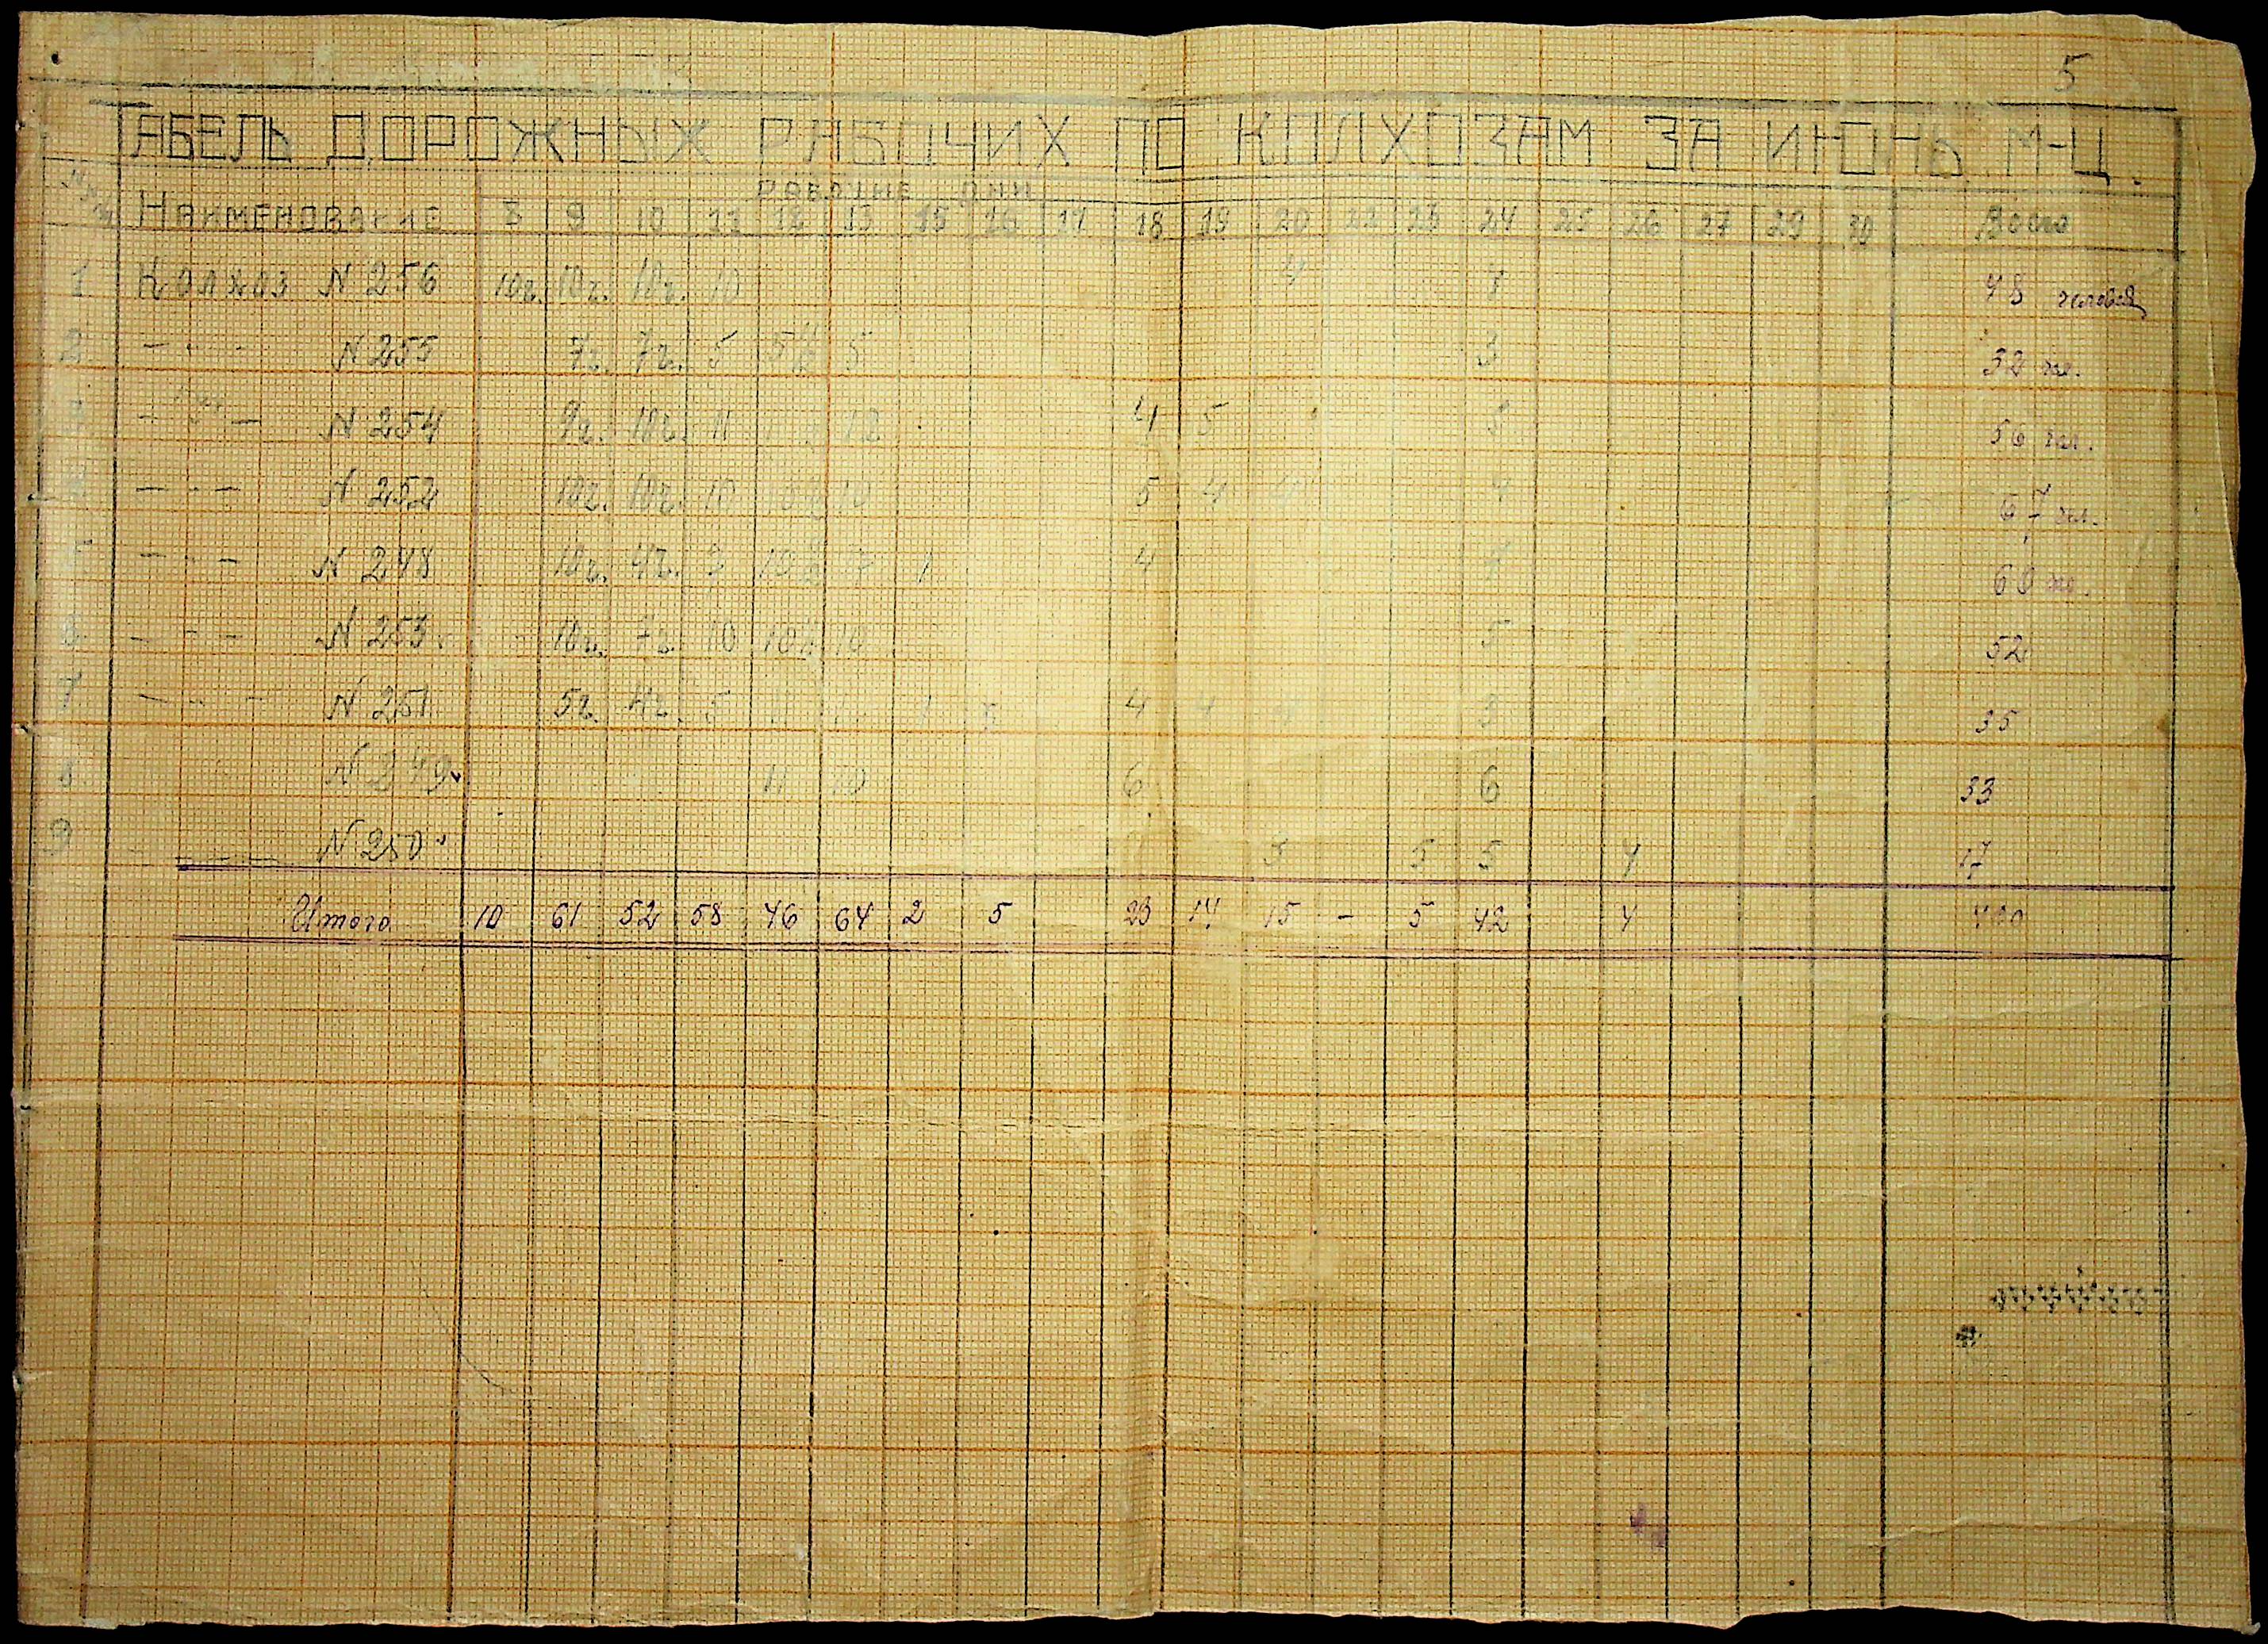 5
ТАБЕЛЬ ДОРОЖНЫХ РАБОЧИХ ПО КОЛХОЗАМ ЗА ИЮНЬ М-Ц.
РАБОЧИЕ ДНИ
НАИМЕНОВАНИЕ 8 9 10 11 12 13 15 16 17 18 19 20 22 23 24 25 26 27 29 30 Всего
1 Колхоз N 256 10ч. 10ч. 10ч. 10 4 4 48 человек
2 — · — N 255 7ч. 7ч. 5 5 5 3 32 чел.
3 — · — N 254 9ч. 10ч. 11 12 4 5 5 56 чел.
4 — · — N 252 10ч. 10ч. 10 10 10 5 4 4 67 чел.
5 — · — N 248 10ч. 4ч. 7 10 7 1 4 60 чел.
6 — · — N 253. 10ч. 7ч. 10 10 10 5 52
7 — · — N 251 5ч. 4ч. 5 4 4 35
8 N 249 11 10 6 6 33
9 N 250 5 5 5 4 17
Итого 10 61 52 58 46 64 2 5 23 14 15 — 5 42 4 400